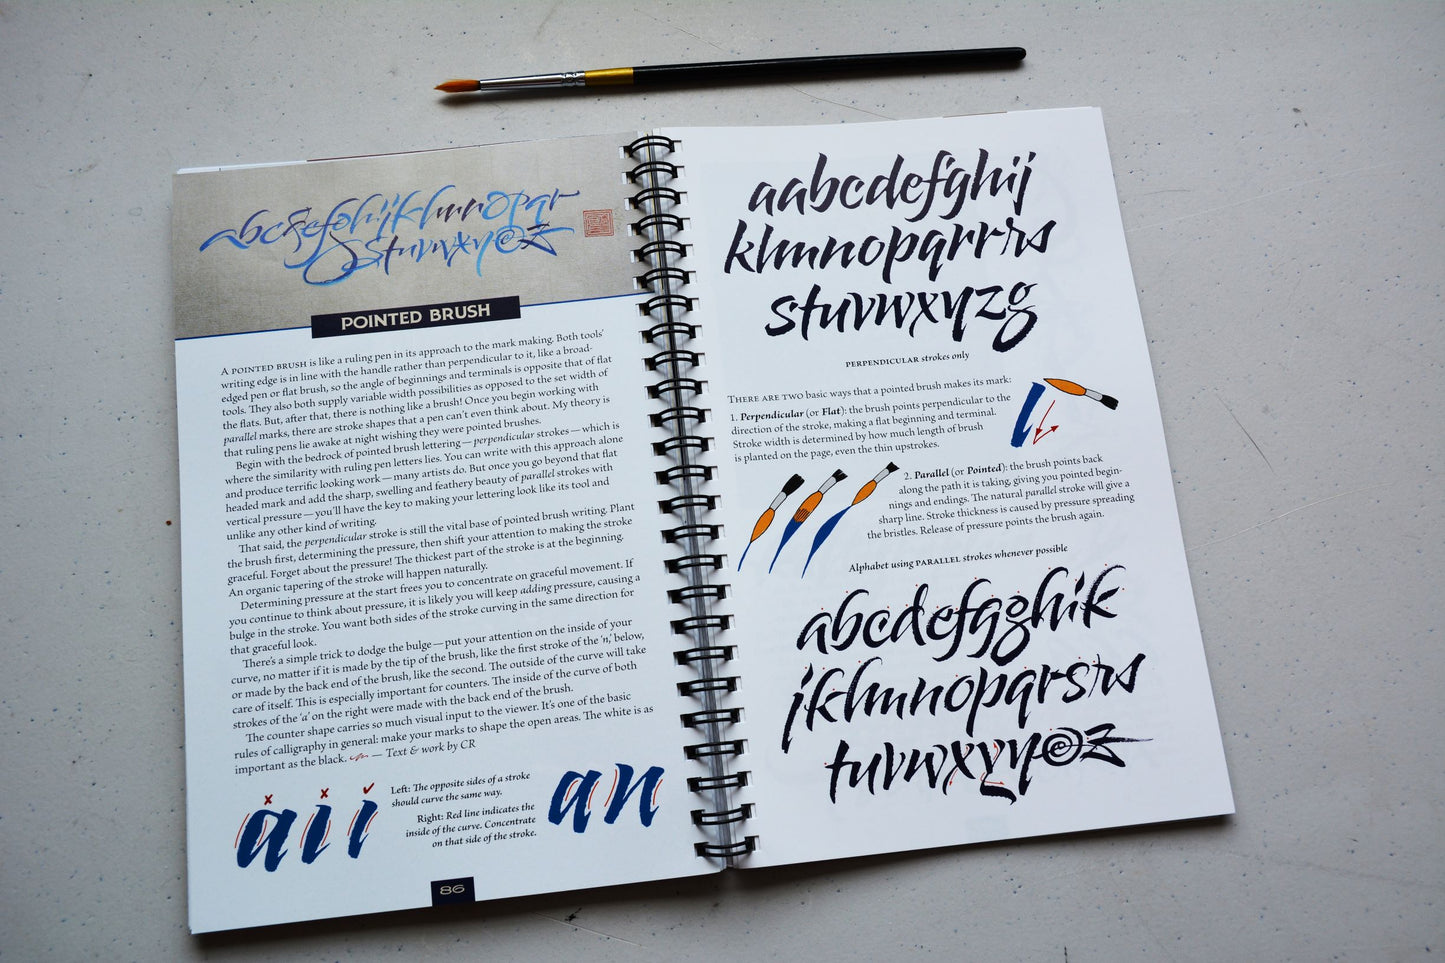 abcdefghijklmnopqr
stuvwxyz
POINTED BRUSH
A POINTED BRUSH is like a ruling pen in its approach to the mark making. Both tools’
writing edge is in line with the handle rather than perpendicular to it, like a broad-
edged pen or flat brush, so the angle of beginnings and terminals is opposite that of flat
tools. They also both supply variable width possibilities as opposed to the set width of
the flats. But, after that, there is nothing like a brush! Once you begin working with
parallel marks, there are stroke shapes that a pen can’t even think about. My theory is
that ruling pens lie awake at night wishing they were pointed brushes.
Begin with the bedrock of pointed brush lettering—perpendicular strokes—which is
where the similarity with ruling pen letters lies. You can write with this approach alone
and produce terrific looking work—many artists do. But once you go beyond that flat
headed mark and add the sharp, swelling and feathery beauty of parallel strokes with
vertical pressure—you’ll have the key to making your lettering look like its tool and
unlike any other kind of writing.
That said, the perpendicular stroke is still the vital base of pointed brush writing. Plant
the brush first, determining the pressure, then shift your attention to making the stroke
graceful. Forget about the pressure! The thickest part of the stroke is at the beginning.
An organic tapering of the stroke will happen naturally.
Determining pressure at the start frees you to concentrate on graceful movement. If
you continue to think about pressure, it is likely you will keep adding pressure, causing a
bulge in the stroke. You want both sides of the stroke curving in the same direction for
that graceful look.
There’s a simple trick to dodge the bulge—put your attention on the inside of your
curve, no matter if it is made by the tip of the brush, like the first stroke of the ‘n,’ below,
or made by the back end of the brush, like the second. The outside of the curve will take
care of itself. This is especially important for counters. The inside of the curve of both
strokes of the ‘a’ on the right were made with the back end of the brush.
The counter shape carries so much visual input to the viewer. It’s one of the basic
rules of calligraphy in general: make your marks to shape the open areas. The white is as
important as the black. — Text & work by CR
a i i
Left: The opposite sides of a stroke
should curve the same way.
Right: Red line indicates the
inside of the curve. Concentrate
on that side of the stroke.
an
86
aabcdefghij
klmnopqrrrs
stuvwxyzg
PERPENDICULAR strokes only
THERE ARE TWO basic ways that a pointed brush makes its mark:
1. Perpendicular (or Flat): the brush points perpendicular to the
direction of the stroke, making a flat beginning and terminal.
Stroke width is determined by how much length of brush
is planted on the page, even the thin upstrokes.
2. Parallel (or Pointed): the brush points back
along the path it is taking, giving you pointed begin-
nings and endings. The natural parallel stroke will give a
sharp line. Stroke thickness is caused by pressure spreading
the bristles. Release of pressure points the brush again.
Alphabet using PARALLEL strokes whenever possible
abcdefgghik
jklmnopqrsrs
tuvwxyyoz